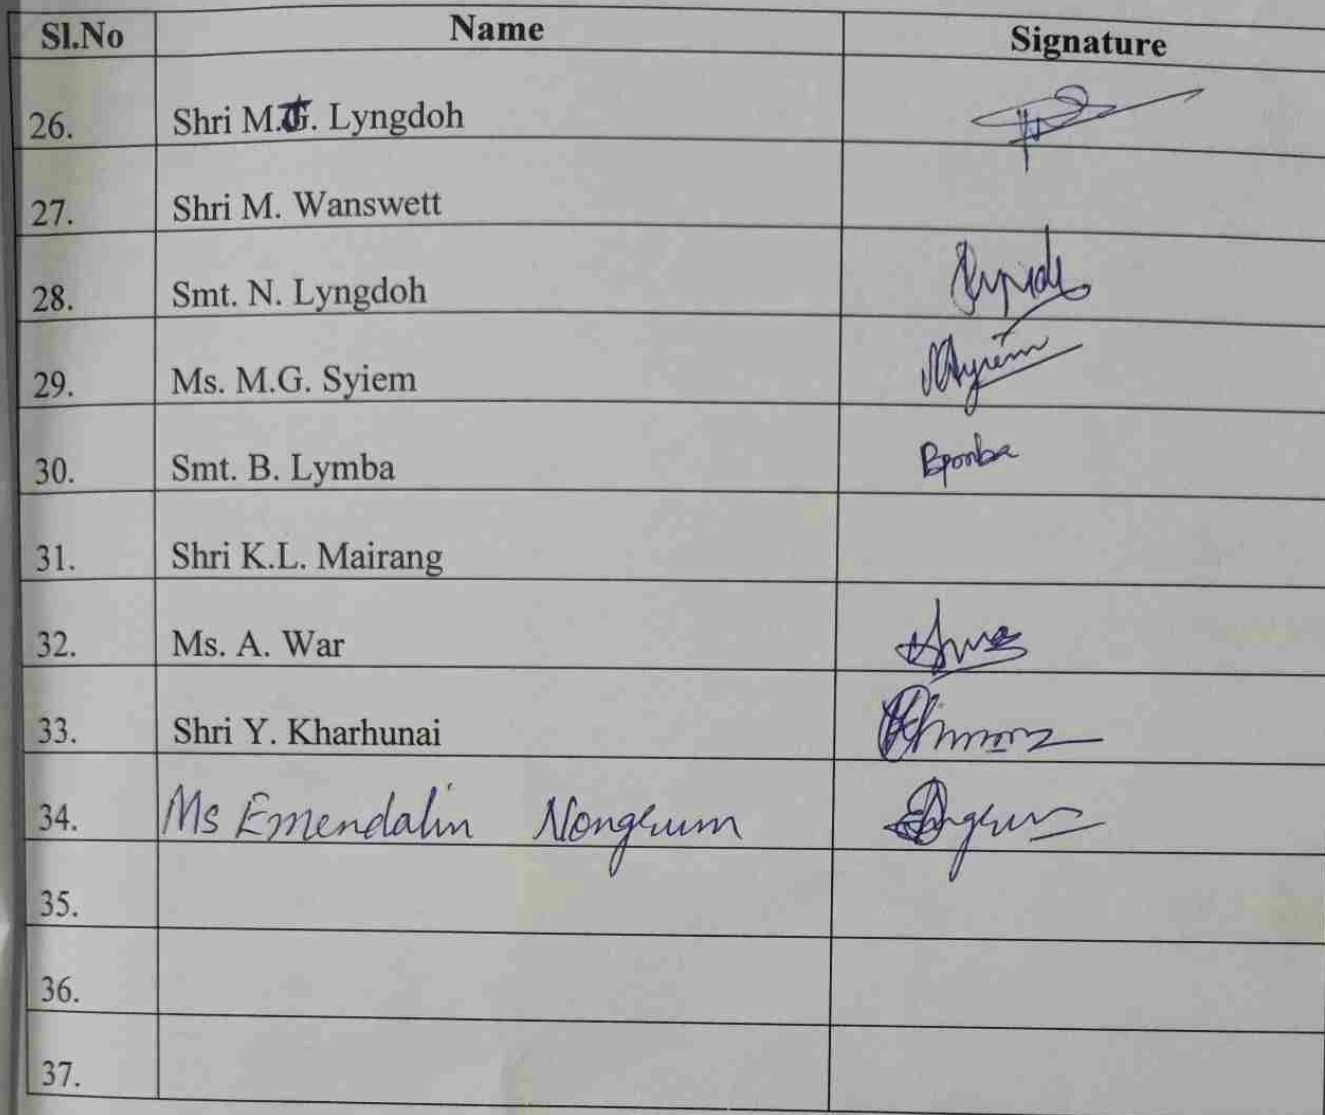 Sl.No Name Signature
26. Shri M.J. Lyngdoh
27. Shri M. Wanswett
28. Smt. N. Lyngdoh
29. Ms. M.G. Syiem
30. Smt. B. Lymba
31. Shri K.L. Mairang
32. Ms. A. War
33. Shri Y. Kharhunai
34. Ms Emendalin Nongrum
35.
36.
37.